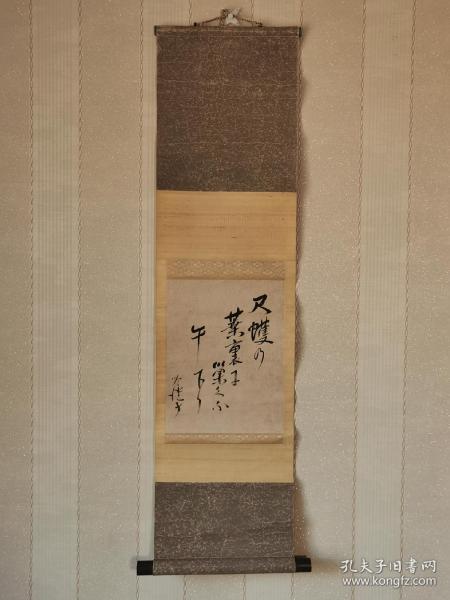 尺蠖の
葉裏に
巣くふ
午下り
孔夫子旧书网
www.kongfz.com